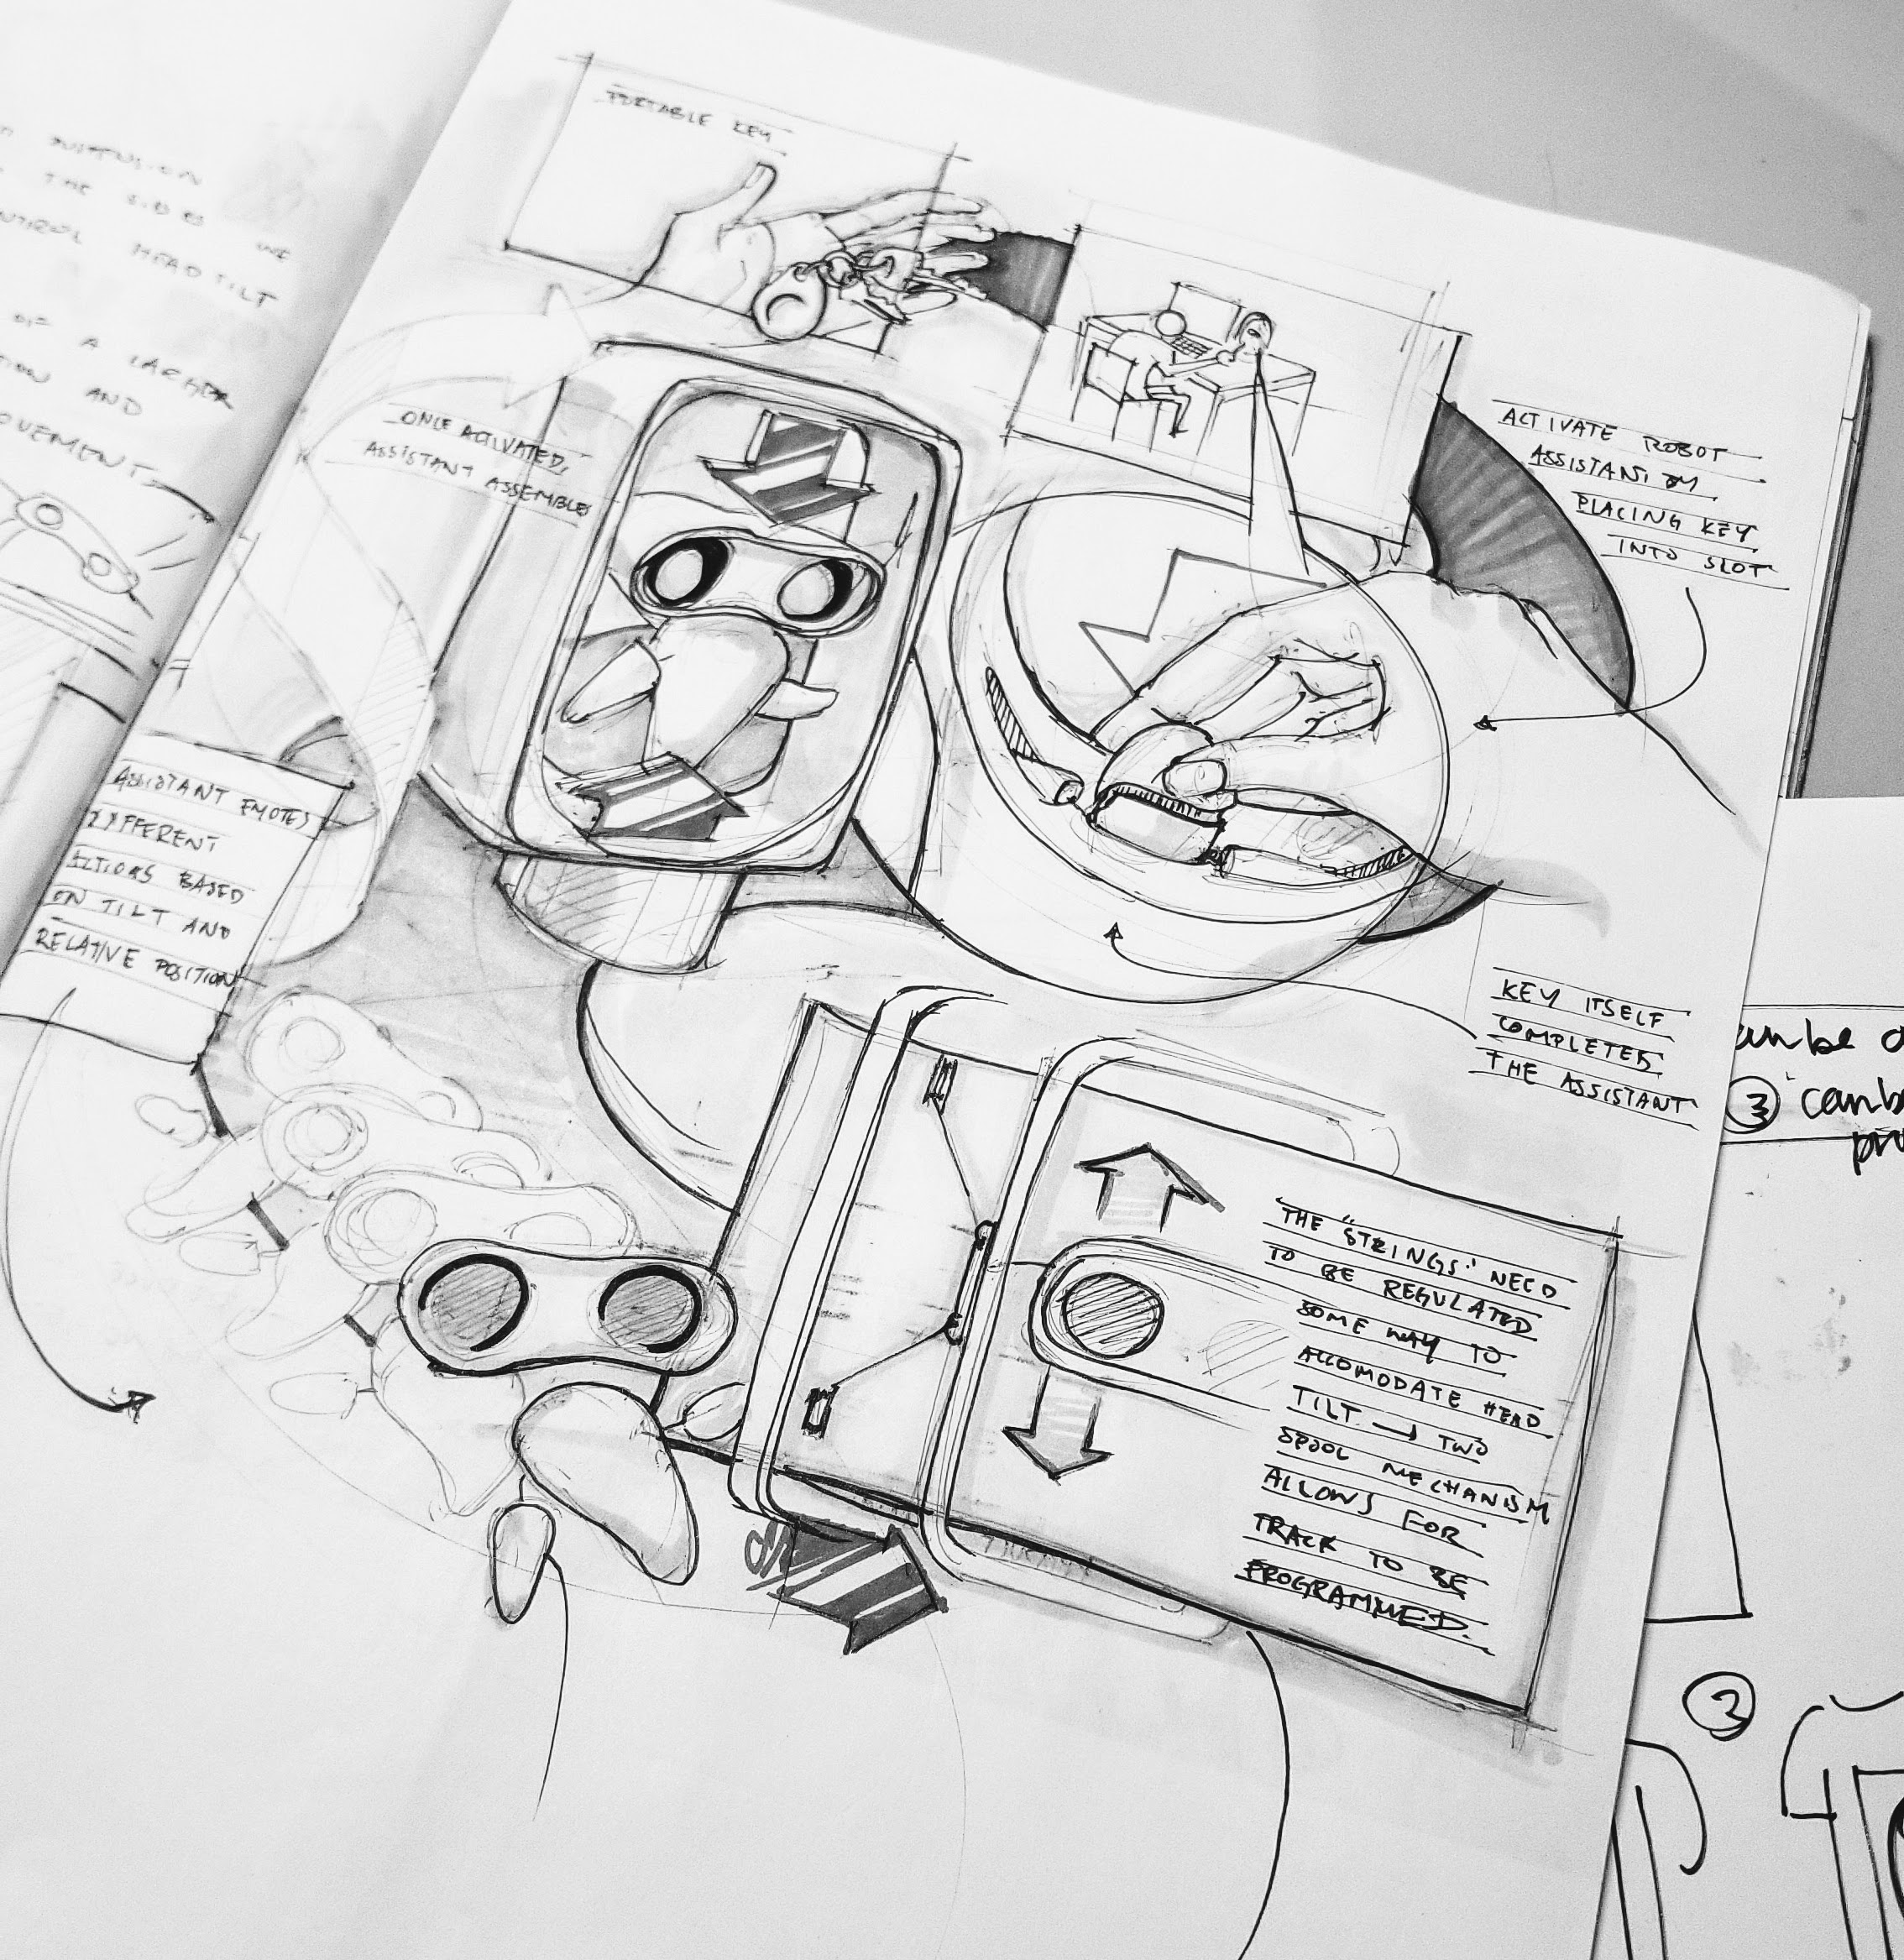 THE SIDES WE
HEAD TILT
OF A LARGER
AND
PORTABLE KEY
ONCE ACTIVATED,
ASSISTANT ASSEMBLES
ACTIVATE ROBOT
ASSISTANT BY
PLACING KEY
INTO SLOT
ASSISTANT EMOTES
DIFFERENT
ACTIONS BASED
ON TILT AND
RELATIVE POSITION
KEY ITSELF
COMPLETES
THE ASSISTANT
THE "STRINGS" NEED
TO BE REGULATED
SOME WAY TO
ALLOMODATE HEAD
TILT → TWO
SPOOL MECHANISM
ALLOWS FOR
TRACK TO BE
PROGRAMMED.
be
③ can
②